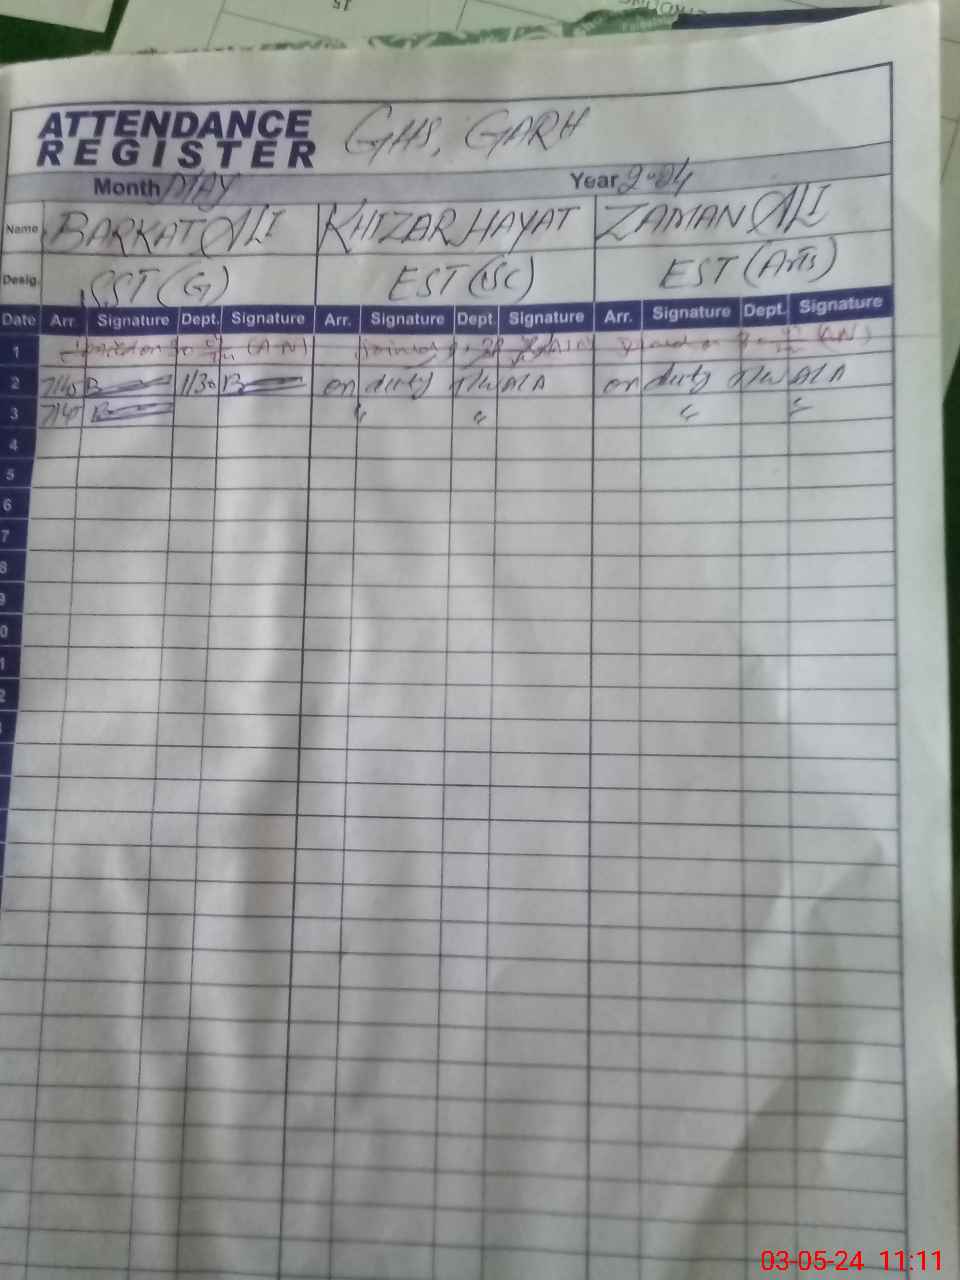 15
ATTENDANCE
REGISTER GHS, GARH
Month MAY Year 2024
Name BARKAT ALI KHIZAR HAYAT ZAMAN ALI
Desig. SST (G) EST (SC) EST (Arts)
Date Arr. Signature Dept. Signature Arr. Signature Dept Signature Arr. Signature Dept. Signature
1 (A-N) (AN)
2 7/40 1/30 on duty on duty
3 7/45 " " " "
4
5
6
7
8
9
0
1
2
03-05-24 11:11